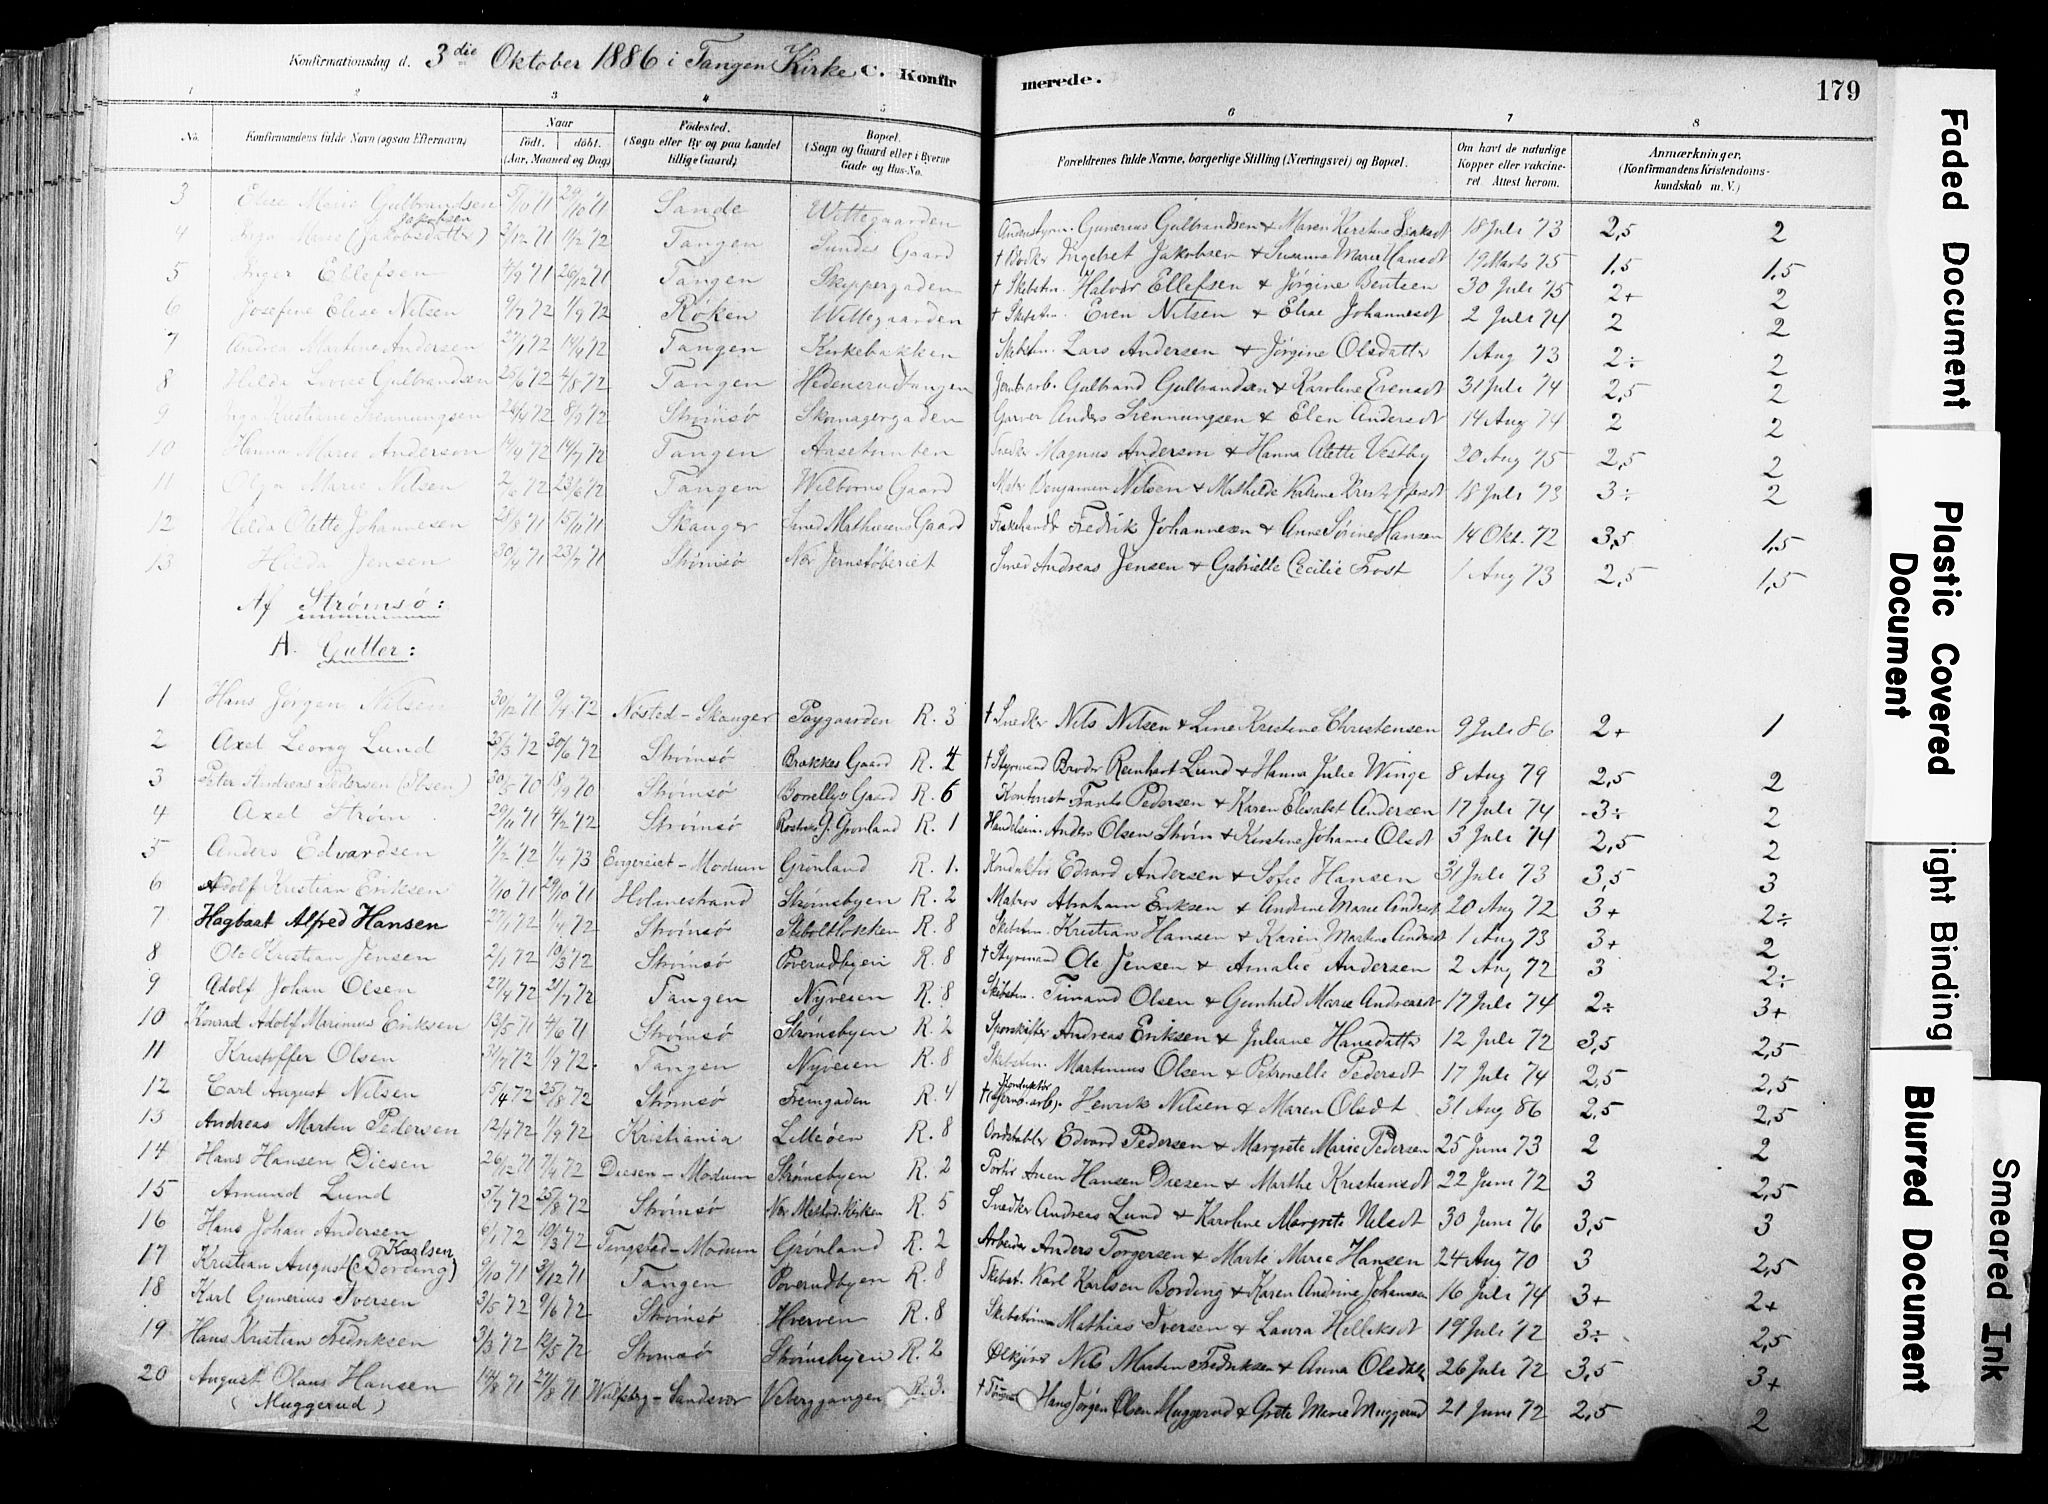 Konfirmationsdag d. 3die Oktober 1886 i Tangen Kirke C. Konfirmerede. 179
1 2 3 4 5 6 7 8
No. Konfirmandens fulde Navn (ogsaa Efternavn) Naar født. døbt. (Aar, Maaned og Dag) Fødested. (Sogn eller By og paa Landet tillige Gaard) Bopæl. (Sogn og Gaard eller i Byerne Gade og Hus-No. Forældrenes fulde Navne, borgerlige Stilling (Næringsvei) og Bopæl. Om havt de naturlige Kopper eller vakcineret. Attest herom. Anmærkninger. (Konfirmandens Kristendomskundskab m. V.)
3 Elise Marie Gulbrandsen 5/10 71 29/10 71 Sande Wittegaarden Gunerius Gulbrandsen & Maren Kirstine 18 Juli 73 2,5 2
4 Inga Marie (Jakobsdatter) Jakobsen 2/12 71 1/2 72 Tangen Sundes Gaard † Ingebret Jakobsen & Susanna Marie Hansdt 19 Marts 75 1,5 1,5
5 Inger Ellefsen 4/9 71 26/12 71 Tangen Skippergaden † Skibstm. Halvor Ellefsen & Jørgine Bentsen 30 Juli 75 2+ 2
6 Josefine Elise Nilsen 9/7 72 1/9 72 Røken Wittegaarden † Skibstm. Even Nilsen & Elise Johannesdt 2 Juli 74 2 2
7 Andrea Martine Andersen 27/1 72 14/4 72 Tangen Kirkebakken Skibstm. Lars Andersen & Jørgine Olsdatter 1 Aug 73 2÷ 2
8 Hilda Lovise Gulbrandsen 25/6 72 4/8 72 Tangen Hedenerud Tangen Jernb.arb. Gulbrand Gulbrandsen & Karoline Evensdt 31 Juli 74 2,5 2
9 Inga Kristiane Svennungsen 24/4 72 8/9 72 Strømsø Skomagergaden Garver Anders Svennungsen & Elen Andersdt 14 Aug 74 2 2
10 Hanna Marie Anderson 14/4 72 14/7 72 Tangen Aasetomten Snedker Magnus Anderson & Hanna Alette Vestby 20 Aug 75 2,5 2
11 Olga Marie Nilsen 2/6 72 23/6 72 Tangen Wilborns Gaard Benjamin Nilsen & Mathilde Katrine 18 Juli 73 3÷ 2
12 Hilda Olette Johannesen 21/8 71 15/10 71 Skanger Smed Mathiesens Gaard Fiskehandl. Fredrik Johannesen & Anne Sørine Hansen 14 Okt. 72 3,5 1,5
13 Hilda Jensen 30/4 71 23/7 71 Strømsø Nær Jernstøberiet Smed Andreas Jensen & Gabrielle Cecilie Frost 1 Aug 73 2,5 1,5
Af Strømsø:
A. Gutter:
1 Hans Jørgen Nilsen 30/12 71 9/4 72 Nøsted - Skanger Paygaarden R. 3 † Snedker Nils Nilsen & Line Kristine Christensen 9 Juli 86 2+ 1
2 Axel Georg Lund 25/3 72 30/6 72 Strømsø Brakkes Gaard R. 4 † Styrmand Broder Reinhart Lund & Hanna Julie Winge 8 Aug 79 2,5 2
3 Peter Andreas Pedersen (Olsen) 30/5 70 18/9 70 Strømsø Borrellys Gaard R. 6 Kontorist Frants Pedersen & Karen Elisabet Andersen 17 Juli 74 3÷ 2
4 Axel Strøm 29/11 71 4/2 72 Strømsø G. Grønland R. 1 Handelsm. Anders Olsen Strøm & Kirstine Johanne Olsdt 3 Juli 74 2,5 2
5 Anders Edvardsen 7/12 72 1/4 73 Engereiet - Modum Grønland R. 1. Konduktør Edvard Andersen & Sofie Hansen 31 Juli 73 3,5 3
6 Adolf Kristian Eriksen 7/10 71 29/10 71 Holmestrand Strømsbyen R. 2 Matros Abraham Eriksen & Andrine Marie Andersdt 20 Aug 72 3+ 2÷
7 Hagbart Alfred Hansen 27/1 72 1/4 72 Strømsø Skiboltløkken R. 8 Skibstm. Kristian Hansen & Karen Martine Andersdt 1 Aug 73 3+ 2
8 Ole Kristian Jensen 2/1 72 10/3 72 Strømsø Poverudbyen R. 8 † Styrmand Ole Jensen & Amalie Andersen 2 Aug 72 3 2÷
9 Adolf Johan Olsen 27/4 72 21/7 72 Tangen Nyveien R. 8 Skibstm. Timand Olsen & Gunhild Marie Andreasdt 17 Juli 74 2÷ 3+
10 Konrad Adolf Marinius Eriksen 13/5 71 4/6 71 Strømsø Strømsbyen R. 2 Sporskifter Andreas Eriksen & Juliane Hansdatter 12 Juli 72 3,5 2,5
11 Kristoffer Olsen 31/7 72 1/9 72. Tangen Nyveien R. 8 Skibstm. Martinius Olsen & Petronelle Pedersdt 17 Juli 74 2,5 2,5
12 Carl August Nilsen 15/4 72 25/8 72 Strømsø Fremgaden R. 4 † (Jernb.arb.) Konduktør Henrik Nilsen & Maren Olsdt 31 Aug 86 2,5 2,5
13 Andreas Martin Pedersen 12/4 72 1/9 72 Kristiania Lilleøen R. 8 Edvard Pedersen & Margrete Marie Pedersen 25 Juni 73 2 2
14 Hans Hansen Diesen 26/12 71 7/4 72 Diesen - Modum Strømsbyen R. 2 Portør Hansen Diesen & Marthe Kristiansdt 22 Juni 72 3 2,5
15 Amund Lund 5/7 72 25/8 72 Strømsø Nær Metod. Kirken R. 5 Snedker Andreas Lund & Karoline Margrete Nilsdt 30 Juni 76 3,5 3
16 Hans Johan Andersen 9/1 72 10/3 72 Tingsted - Modum Grønland R. 2 Arbeider Anders Torgersen & Marte Marie Hansen 24 Aug 70 3 2,5
17 Kristian August (Bording) Karlsen 9/10 71 31/12 71 Tangen Poverudbyen R. 8 Skibst. Karl Karlsen Bording & Karen Andrine Johannsen 16 Juli 74 3+ 2+
18 Karl Gunerius Iversen 3/5 72 9/6 72 Strømsø Hverven R. 8 Skibstømm Mathias Iversen & Laura Helliksdt 19 Juli 72 3÷ 2,5
19 Hans Kristian Fredriksen 3/3 72 12/5 72 Strømsø Strømsbyen R. 2 Ølkjører Nils Martin Fredriksen & Anna Olsdatter 26 Juli 72 3,5 3+
20 August Olaus Hansen (Muggerud) 14/8 71 27/8 71 Sandsvær Veberggangen R. 3. † Hans Jørgen Olsen Muggerud & Grete Marie Muggerud 21 Juni 72 2,5 2
Faded Document
Plastic Covered Document
ight Binding
Blurred Document
Smeared Ink